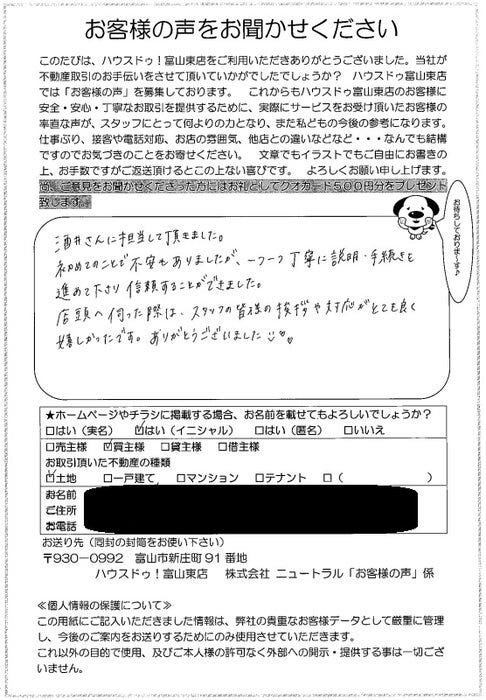 お客様の声をお聞かせください
このたびは、ハウスドゥ！富山東店をご利用いただきありがとうございました。当社が
不動産取引のお手伝いをさせて頂いていかがでしたでしょうか？　ハウスドゥ富山東店
では「お客様の声」を募集しております。　これからもハウスドゥ富山東店のお客様に
安全・安心・丁寧なお取引を提供するために、実際にサービスをお受け頂いたお客様の
率直な声が、スタッフにとって何よりの力となり、また私どもの今後の参考になります。
仕事ぶり、接客や電話対応、お店の雰囲気、他店との違いなどなど・・・なんでも結構
ですのでお気づきのことをお寄せください。　文章でもイラストでもご自由にお書きの
上、お手数ですがご返送頂けるとこの上ない喜びです。　よろしくお願い申し上げます。
尚、ご意見をお聞かせくださった方にはお礼としてクオカード５００円分をプレゼント
致します。
お待ちしておりま～す♪
酒井さんに担当して頂きました。
初めてのことで不安もありましたが、一つ一つ丁寧に説明・手続きを
進めて下さり信頼することができました。
店頭へ伺った際は、スタッフの皆様の挨拶や対応がとても良く
嬉しかったです。ありがとうございました
★ホームページやチラシに掲載する場合、お名前を載せてもよろしいでしょうか？
□はい（実名）　☑はい（イニシャル）　□はい（匿名）　□いいえ
□売主様　☑買主様　□貸主様　□借主様
お取引頂いた不動産の種類
☑土地　□一戸建て　□マンション　□テナント　□（　　　　　　）
お名前
ご住所
お電話
お送り先（同封の封筒をお使い下さい）
〒930-0992　富山市新庄町91番地
ハウスドゥ！富山東店　株式会社 ニュートラル「お客様の声」係
≪個人情報の保護について≫
この用紙にご記入いただきました情報は、弊社の貴重なお客様データとして厳重に管理
し、今後のご案内をお送りするためにのみ使用させていただきます。
これ以外の目的で使用、及びご本人様の許可なく外部への開示・提供する事は一切ござ
いません。